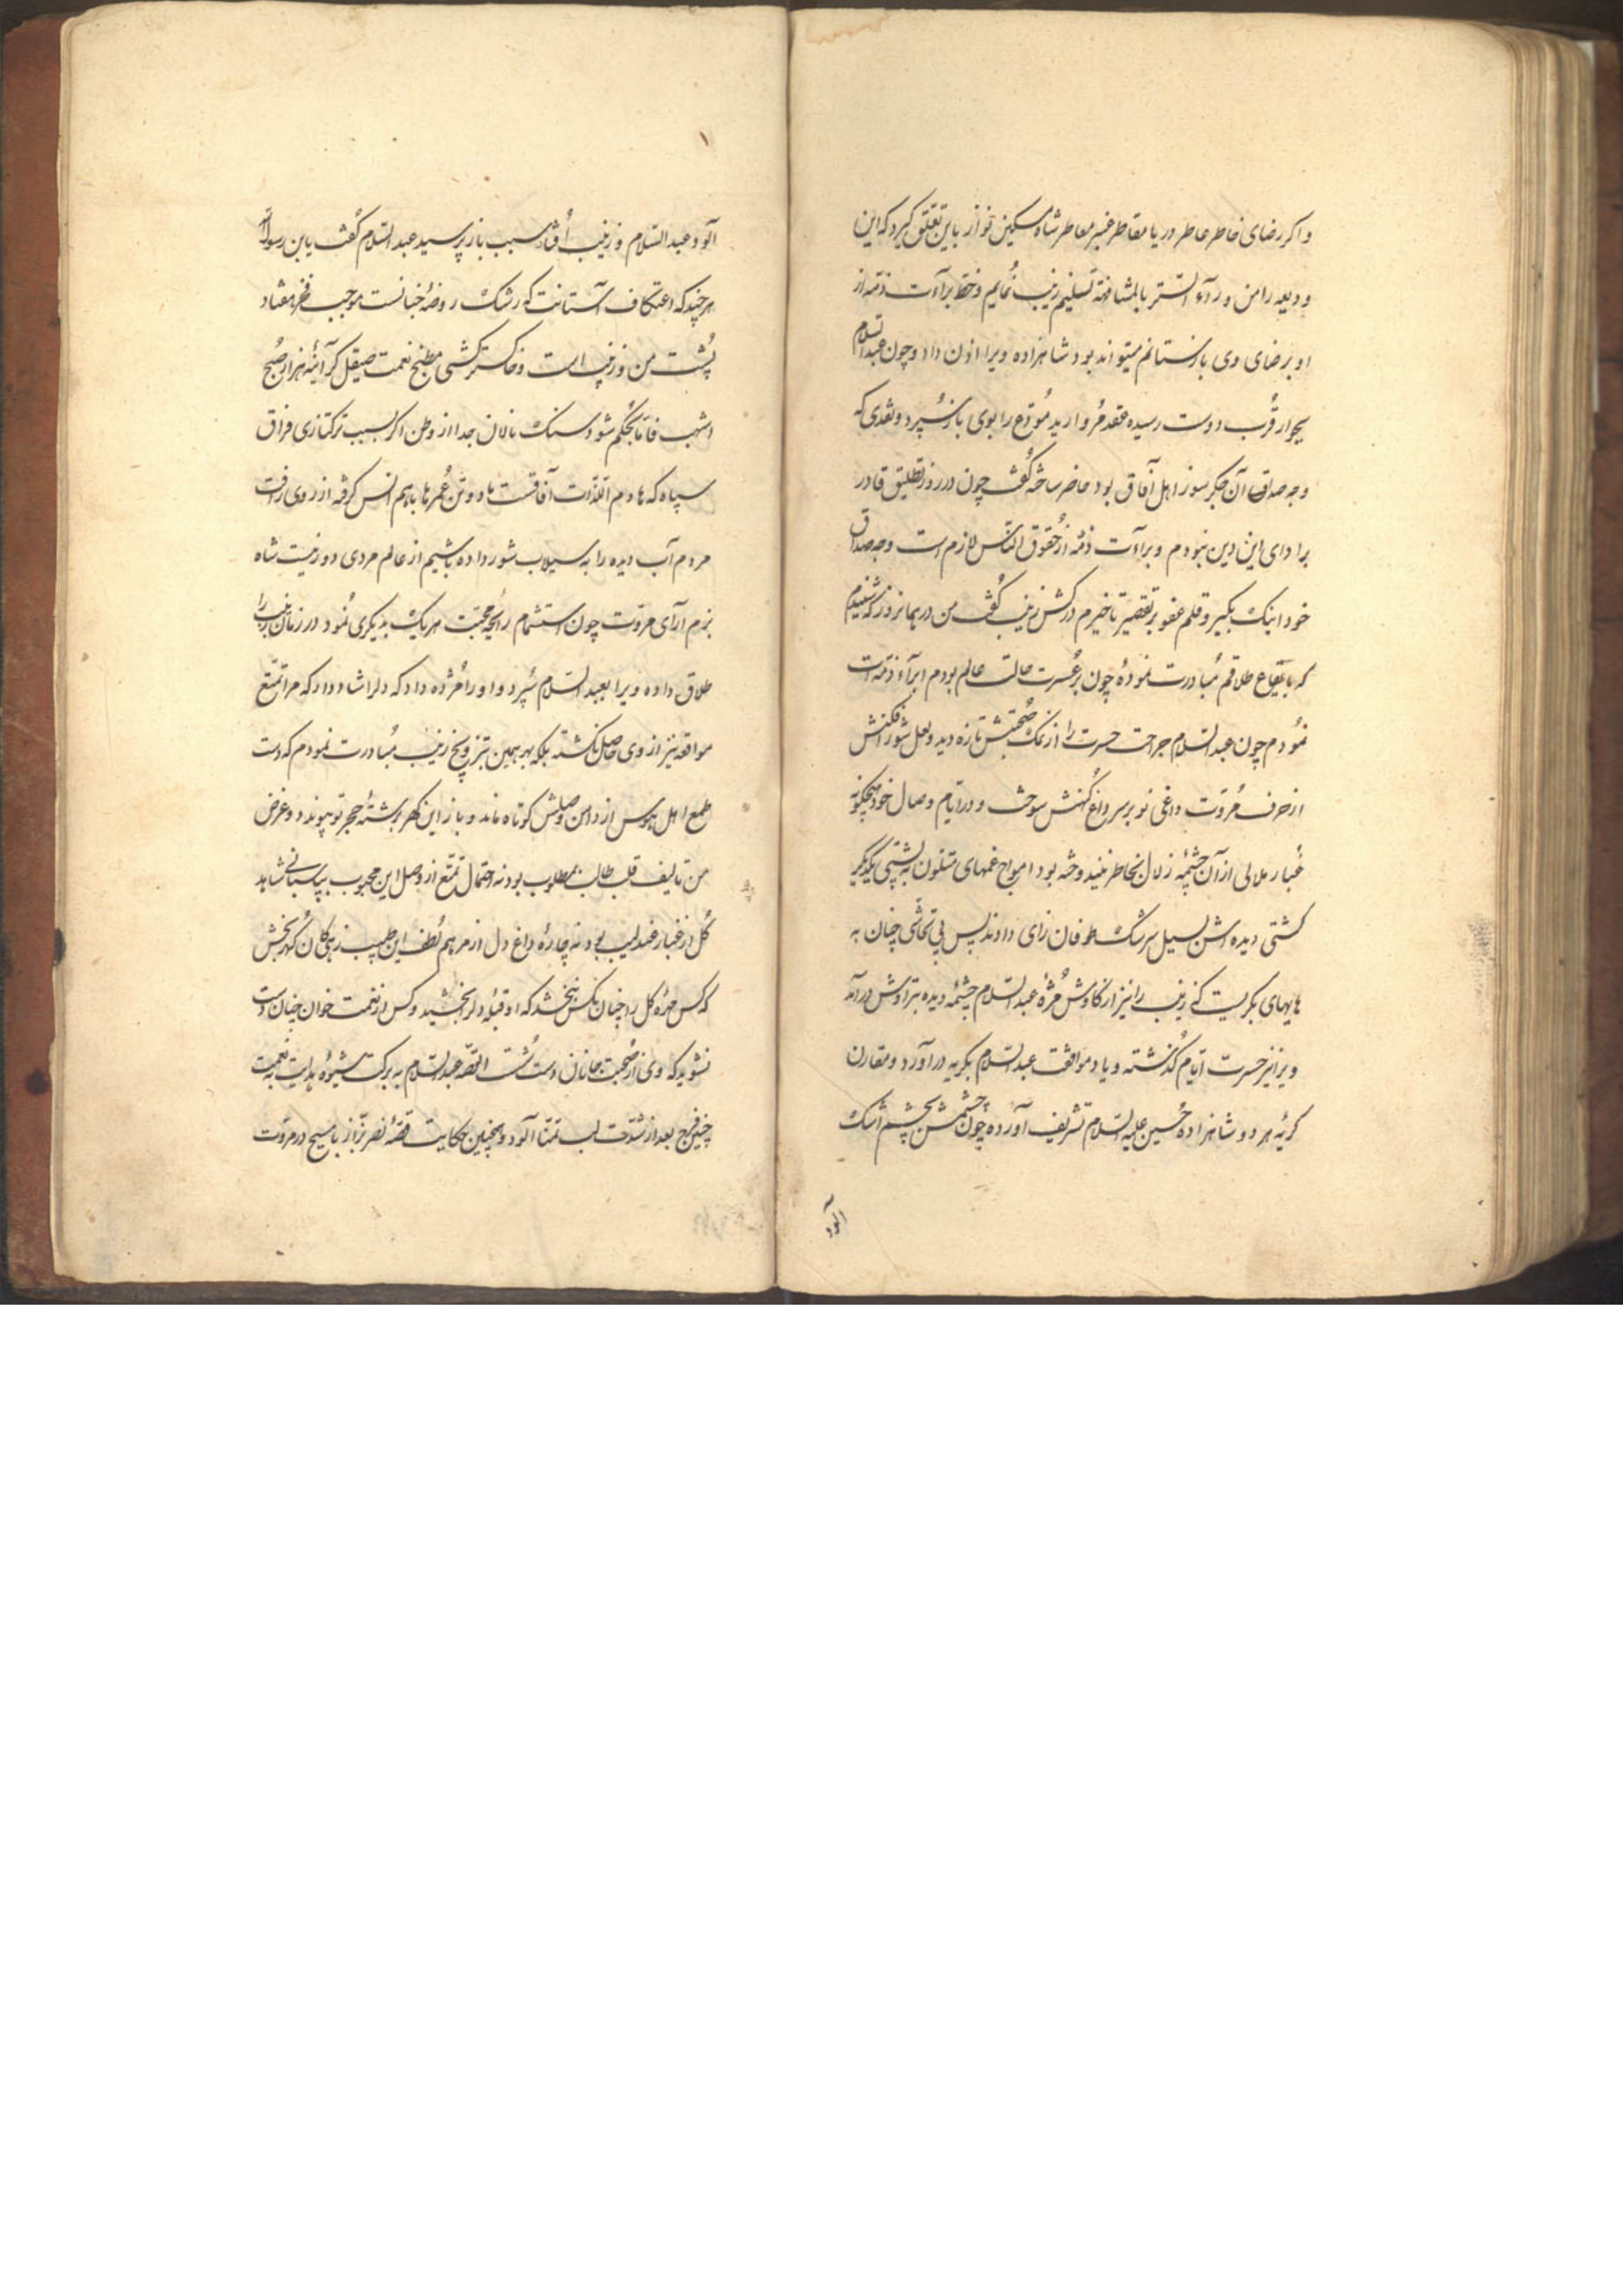 و اگر رضای خاطر عاطر دریا مقاطر عنبر معاطر شاه مسکین نواز باین تعلق گیرد که این
ودیعه را من ورآء الستر بالمشافهه تسلیم زینب نمایم و خط برآءت ذمه از
او برضای وی بازستانم میتواند بود شاهزاده ویرا اذن داد و چون عبدالسلام
بجوار قُرب دوست رسیده عقد مروارید مُودَع را بوی باز سُپرد و نقدی که
وجه صداق آن جگر سوز اهل آفاق بود حاضر ساخته گفت چون در روز تطلیق قادر
برادای این دین نبودم و براءت ذمّه از حُقوق النّاس لازم است وجه صداق
خود اینک بگیر و قلم عفو بر تقصیر تاخیرم درکش زینب گفت من در همانروز که شنیدم
که بایقاع طلاقم مُبادرت نموده چون بر عُسرت حالت عالم بودم ابرآء ذمّه ات
نمُودم چون عبدالسلام جراحت حسرت را از نمک صُحبتش تازه دید و لعل شورافکنش
از حرف مُروّت داغی نو بر سر داغ کُهنش سوخت و در ایّام وصال خود هیچگونه
غُبار ملالی از آن چشمهٔ زلال بخاطر نیندوخته بود امواج غمهای متلون به پشتی یکدیگر
کشتی دیده اش بسیل سرشک طوفان زای دادند پس بی تحاشی چنان به
هایهای بگریست که زینب را نیز از کاوش مُژهٔ عبدالسلام چشمهٔ دیده بتراوش درآمد
ویرا نیز حسرت ایّام گذشته و یاد موافقت عبدالسلام بگریه درآورد و مقارن
گریهٔ هر دو شاهزاده حُسین علیه السّلام تشریف آورده چون چشمش بچشم اشک
آلود
آلود عبدالسّلام و زینب اُفتاد سبب باز پرسید عبدالسّلام گفت یا بن رسول الله
هر چند که اعتکاف آستانت که رشک روضهٔ جنانست موجب فخر هفتاد
پُشت من و زینب است و خاکسترکشی مطبخ نعمت صیقل گر آینهٔ هزار صُبح
اشهب فامّا بحکم شور سنگ نالان جدا از وطن اگر بسبب ترکتازی فراق
سپاه که هادم اللذّات آفاقست ما دو تن عُمرها باهم انس گرفته از روی رافت
مردم آب دیده را به سیلاب شور داده باشیم از عالم مردی دور نیست شاه
بزم آرای مروّت چون استشمام رایحهٔ محبّت هر یک بدیگری نمُود در زمان زینب را
طلاق داده ویرا بعبدالسّلام سُپرد و او را مُژده داد که دل را شاد دار که مرا تمتّع
مواقعه نیز از وی حاصل نگشته بلکه بهر همین بتزویج زینب مُبادرت نمودم که دست
طمع اهل هوس از دامن وصلش کوتاه ماند و باز این گهر برشتهٔ حجر تو پیوندد و غرض
من تالیف قلب طالب بمطلوب بود نه احتمال تمتّع از وصل این محبوب بپاسبانی شاهد
گُل از غبار عندلیب بود نه چارهٔ داغ دل از مرهم لطف این طبیب زهی کان گهر بخش
که کس مهرهٔ گل را چنان بکس نبخشد که او قبلهٔ دل را بخشید و کس از نعمت خوان چنان دست
نشوید که وی از صُحبت جانان دست شُست القصّه عبدالسّلام به برکت شیوهٔ هدایت به نعمت
چنین فرج بعد از شدّت لب تمنّا آلود و همچنین حکایت قصّهٔ نصر بزّاز با مسیح در مروّت